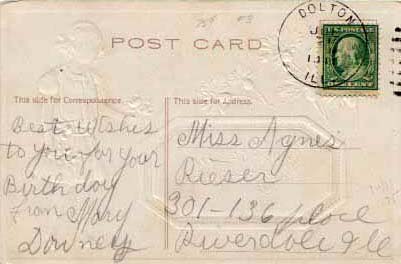 75¢
DOLTON
ILL
U.S. POSTAGE
ONE CENT
POST CARD
This side for Correspondence.
This side for Address.
Best Wishes
to you for your
Birthday
from Mary
Downey
Miss Agnes
Rieser
301-136 place
Riverdale Ill